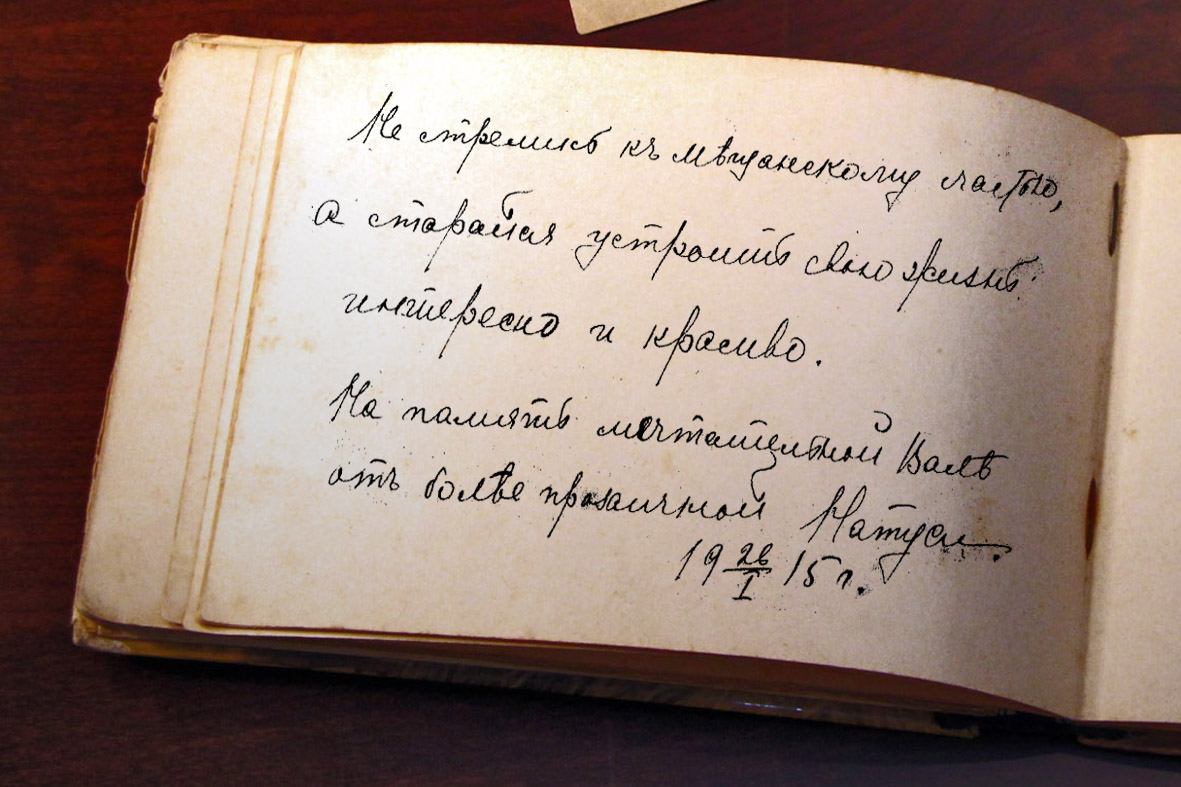 Не стремись къ мѣщанскому счастью,
а старайся устроить свою жизнь
интересно и красиво.
На память мечтательной Валѣ
отъ болѣе прозаичной Натуси.
19 26/I 15 г.